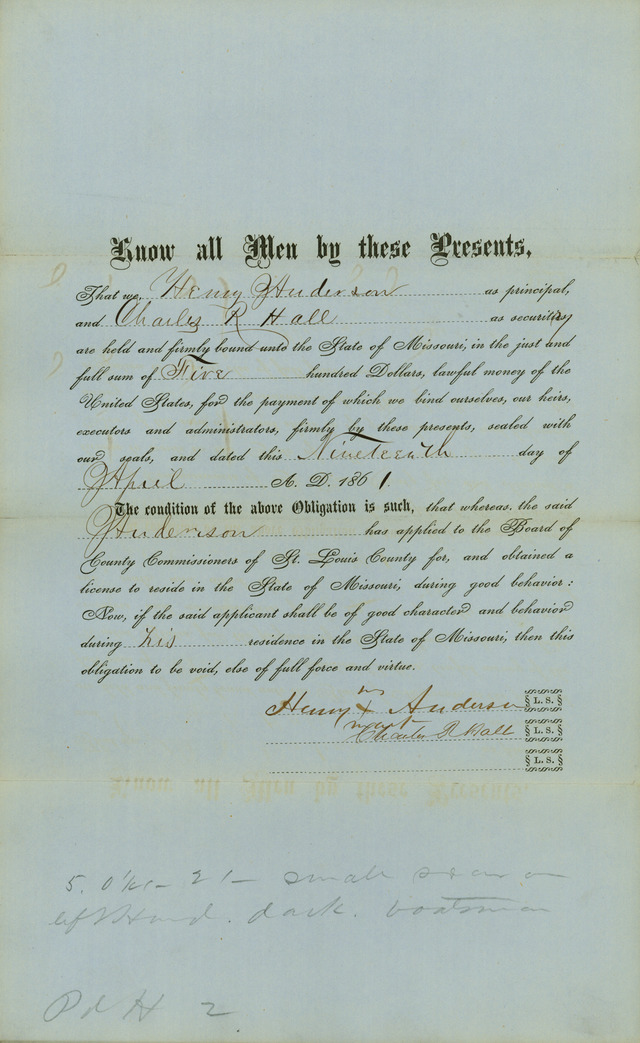 Know all Men by these Presents,
That we, Henry Anderson as principal,
and Charles R Hall as security
are held and firmly bound unto the State of Missouri, in the just and
full sum of Five hundred Dollars, lawful money of the
United States, for the payment of which we bind ourselves, our heirs,
executors and administrators, firmly by these presents, sealed with
our seals, and dated this Nineteenth day of
April A. D. 1861.
The condition of the above Obligation is such, that whereas the said
Anderson has applied to the Board of
County Commissioners of St. Louis County for, and obtained a
license to reside in the State of Missouri, during good behavior:
Now, if the said applicant shall be of good character and behavior
during his residence in the State of Missouri, then this
obligation to be void, else of full force and virtue.
his
Henry X Anderson L. S.
mark
Charles R Hall L. S.
L. S.
5. 21 - small scar on
left Hand. dark. boatman
Pd H 2